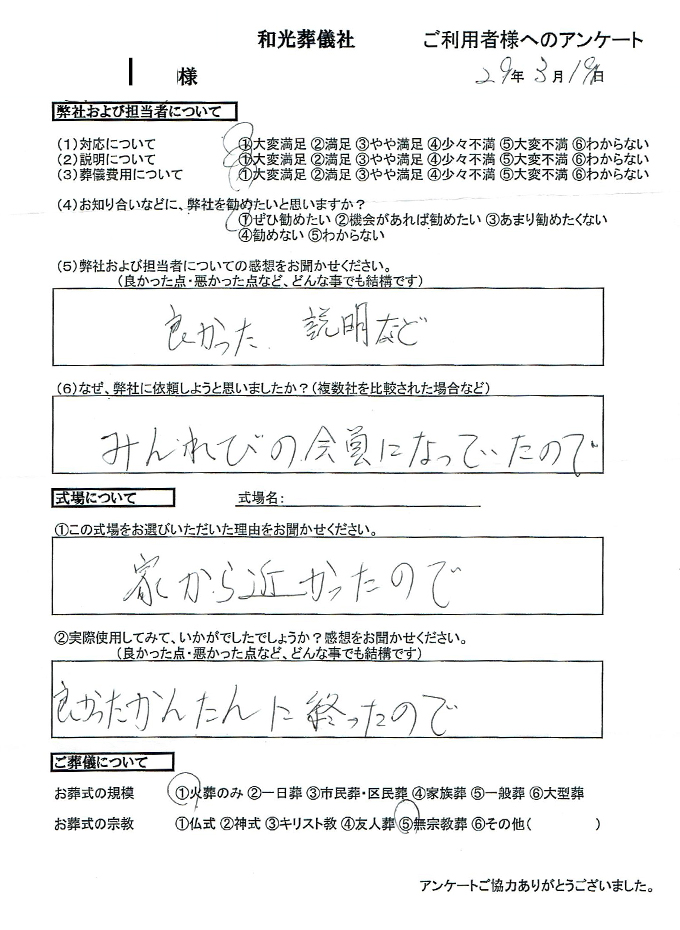 和光葬儀社 ご利用者様へのアンケート
I 様 29年 3月 19日
弊社および担当者について
(1)対応について ①大変満足 ②満足 ③やや満足 ④少々不満 ⑤大変不満 ⑥わからない
(2)説明について ①大変満足 ②満足 ③やや満足 ④少々不満 ⑤大変不満 ⑥わからない
(3)葬儀費用について ①大変満足 ②満足 ③やや満足 ④少々不満 ⑤大変不満 ⑥わからない
(4)お知り合いなどに、弊社を勧めたいと思いますか?
①ぜひ勧めたい ②機会があれば勧めたい ③あまり勧めたくない
④勧めない ⑤わからない
(5)弊社および担当者についての感想をお聞かせください。
(良かった点・悪かった点など、どんな事でも結構です)
良かった. 説明など
(6)なぜ、弊社に依頼しようと思いましたか?(複数社を比較された場合など)
みんれびの会員になっていたので
式場について 式場名:
①この式場をお選びいただいた理由をお聞かせください。
家から近かったので
②実際使用してみて、いかがでしたでしょうか?感想をお聞かせください。
(良かった点・悪かった点など、どんな事でも結構です)
良かったかんたんに終ったので
ご葬儀について
お葬式の規模 ①火葬のみ ②一日葬 ③市民葬・区民葬 ④家族葬 ⑤一般葬 ⑥大型葬
お葬式の宗教 ①仏式 ②神式 ③キリスト教 ④友人葬 ⑤無宗教葬 ⑥その他( )
アンケートご協力ありがとうございました。